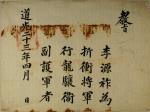 敎旨
李源祚為
折衝將軍
行龍驤衛
副護軍者
道光二十三年四月 日